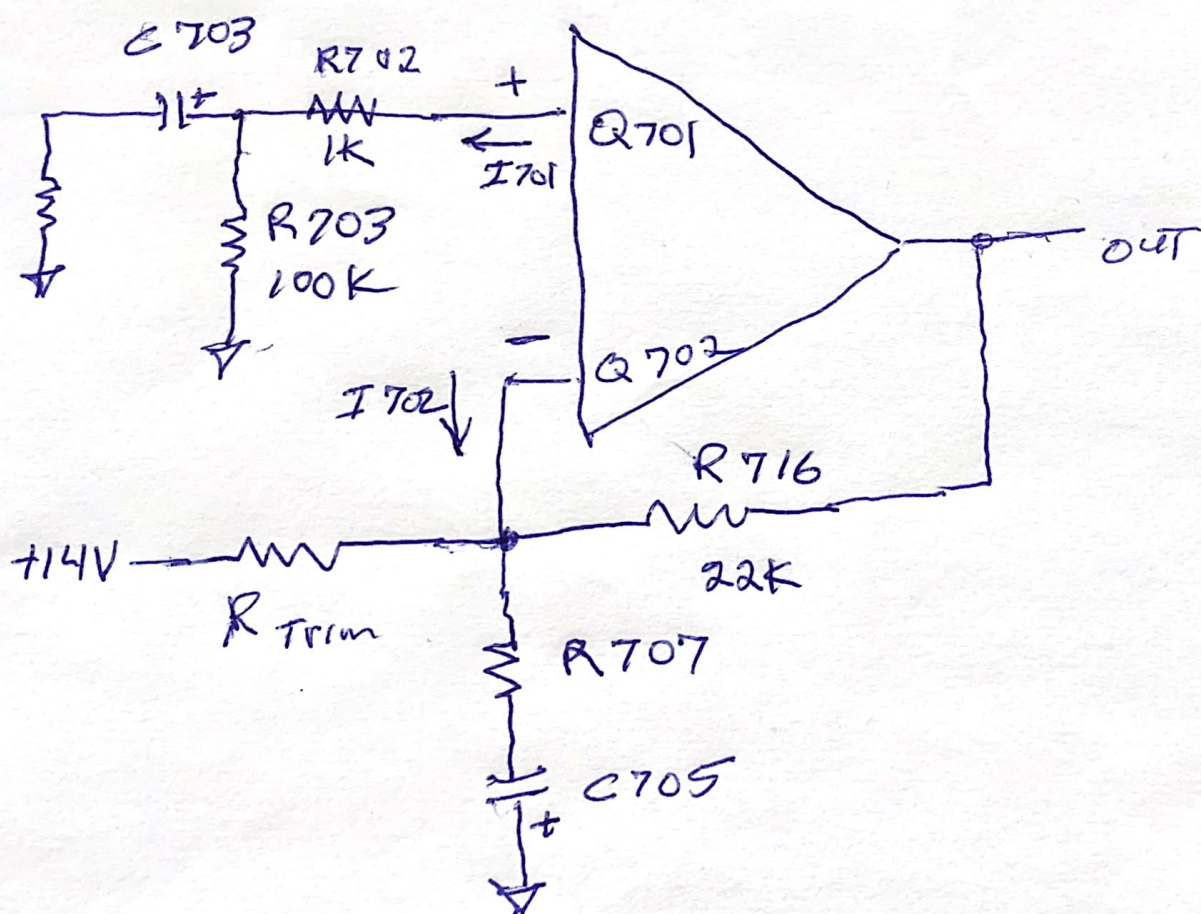 C703
R702
+
+
1K
Q701
I701
R703
100K
OUT
-
Q702
I702
R716
+14V
22K
R Trim
R707
C705
+